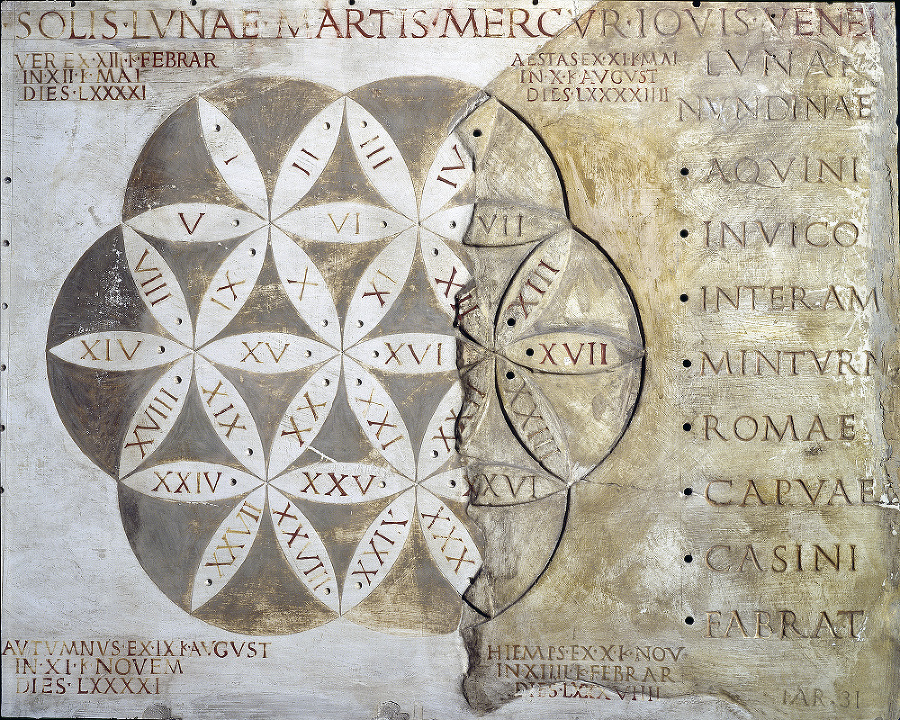 SOLIS·LVNAE·MARTIS·MERCVR·IOVIS·VENERI
VER EX·XII·K·FEBRAR
IN XII·K·MAI
DIES·LXXXXI
AESTAS EX·XI·K·MAI
IN X·K·AVGVST
DIES·LXXXXIIII
LVNAR
NVNDINAE
AQVINI
INVICO
INTERAM
MINTVRN
ROMAE
CAPVAE
CASINI
FABRAT
I II III IV
V VI VII
VIII IX X XI XII XIII
XIV XV XVI XVII
XVIII XIX XX XXI XXII XXIII
XXIV XXV XXVI
XXVII XXVIII XXIX XXX
AVTVMNVS·EX·IX·K·AVGVST
IN·XI·K·NOVEM
DIES·LXXXXI
HIEMPS·EX·XI·K·NOV
IN XIIII·K·FEBRAR
DIES·LXXXVIIII
IAR. 31